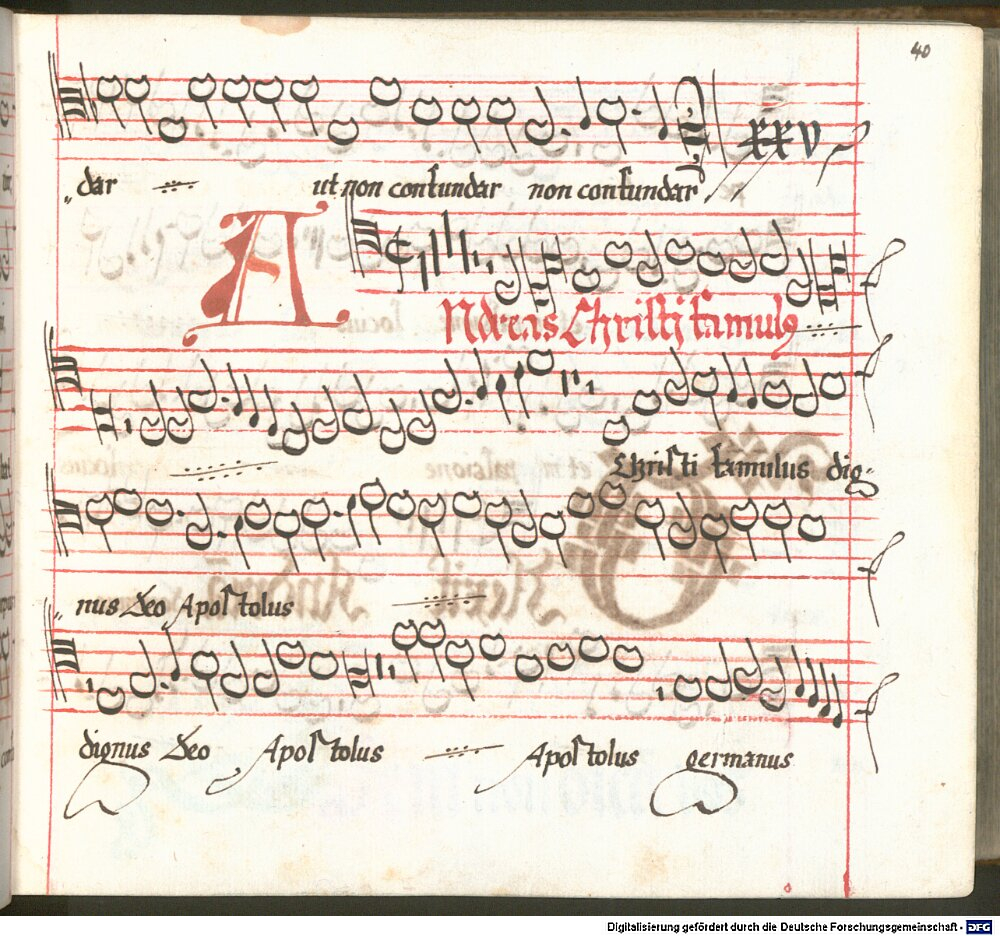 40
XXV
dar ut non confundar non confundar
A
Ndreas Christi famulꝰ
Christi famulus dig-
nus Deo Apostolus
dignus Deo Apostolus Apostolus germanus
Digitalisierung gefördert durch die Deutsche Forschungsgemeinschaft - DFG